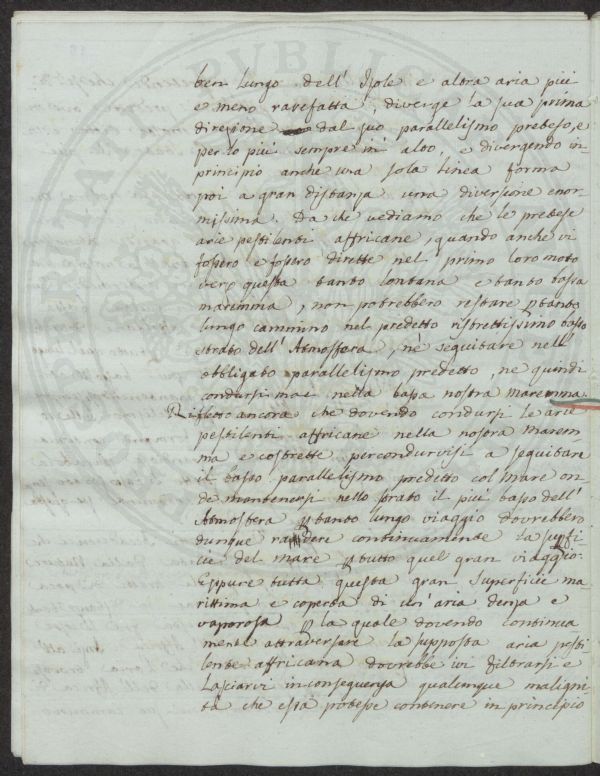 ben lungo dell' Isole e alora aria piu
e meno rarefatta, diverge la sua prima
direzione dal suo parallelismo preteso, e
per lo piu sempre in alto, e divergendo in
principio anche una sola linea forma
poi a gran distanza una diversione enor
missima. Da che vediamo che le pretese
arie pestilenti affricane, quando anche vi
fossero e fossero dirette nel primo loro moto
verso questa tanto lontana e tanto bassa
maremma, non potrebbero restare p tanto
lungo cammino nel predetto ristrettissimo basso
strato dell' Atmosfera, nè seguitare nell'
obbligato parallelismo predetto, ne quindi
condursi mai nella bassa nostra maremma.
Rifletto ancora che dovendo condursi le arie
pestilenti affricane nella nostra marem
ma e costrette per condurvisi a seguitare
il basso parallelismo predetto col mare on
de mantenersi nello strato il piu basso dell'
Atmosfera p tanto lungo viaggio dovrebbero
dunque radere continuamente la supfi
cie del mare p tutto quel gran viaggio.
Eppure tutta questa gran superficie ma
rittima e coperta di un' aria densa e
vaporosa p la quale dovendo continua
mente attraversare la supposta aria pesti
lente affricana dovrebbe ivi filtrarsi e
lasciarvi in conseguenza qualunque maligni
tà che essa potesse contenere in principio